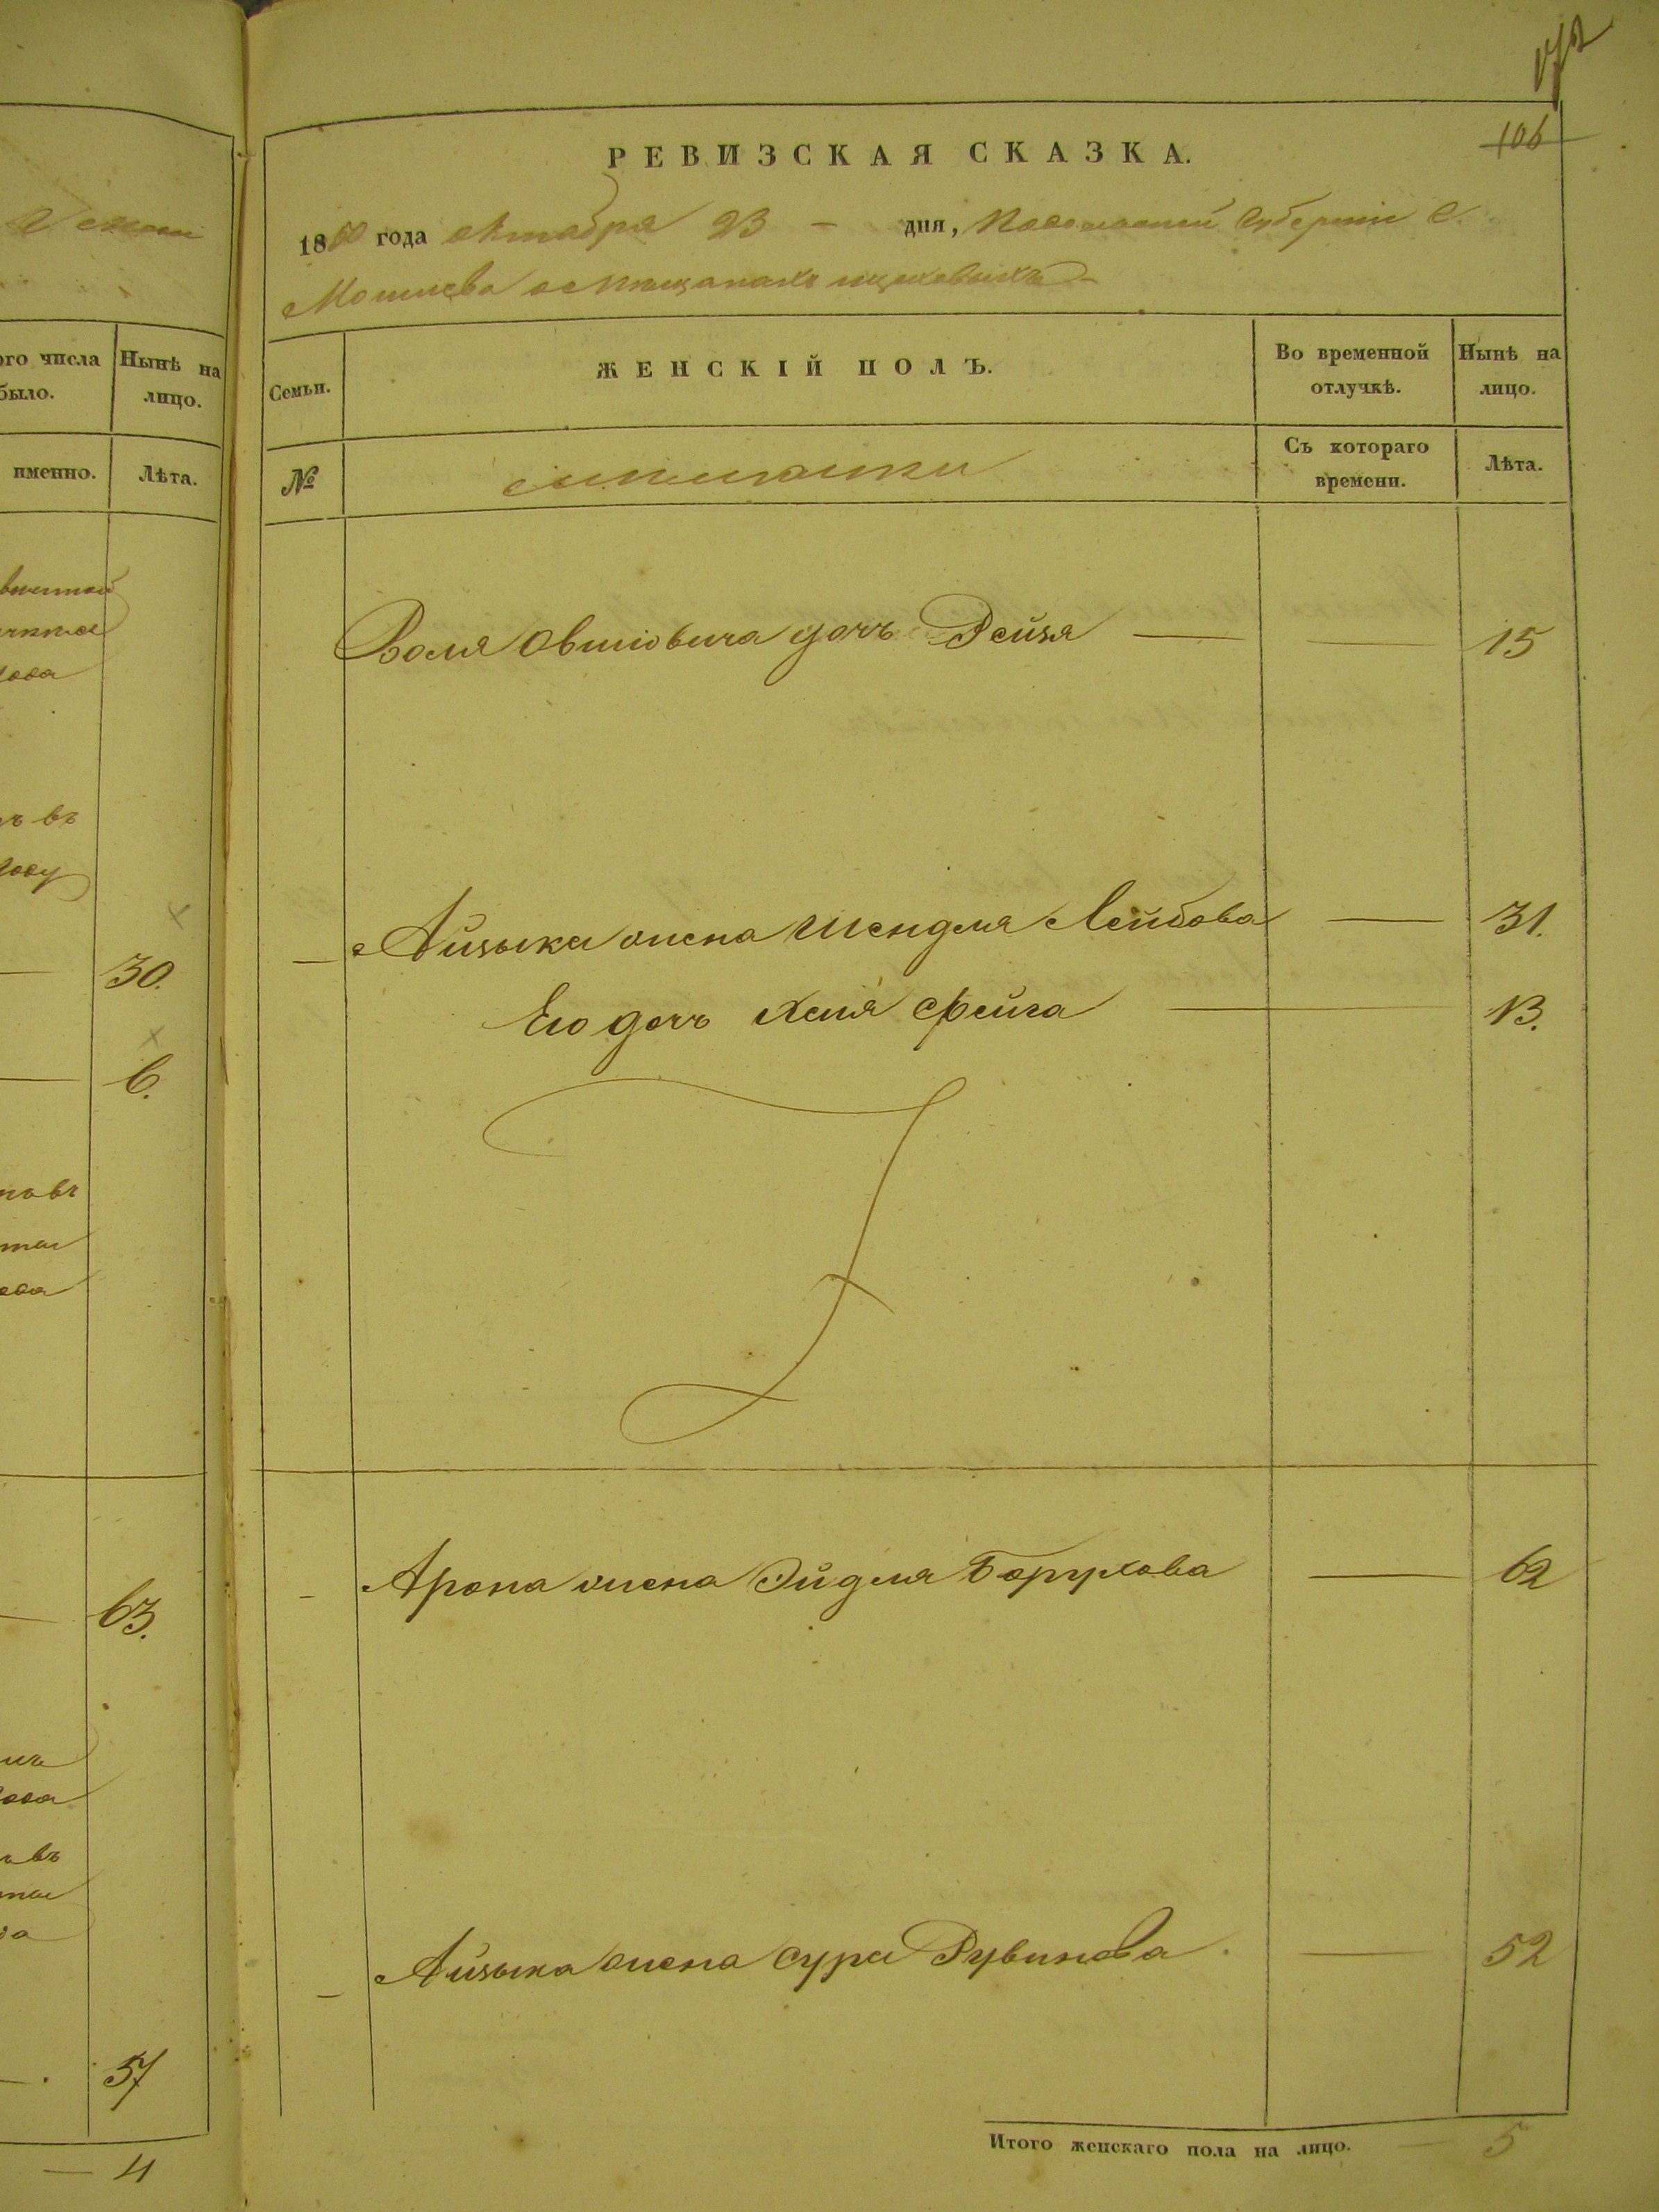 РЕВИЗСКАЯ СКАЗКА.
106
1850 года октября 23 – дня, Подольской Губернии Г.
Могилева о мѣщанахъ цеховыхъ
Семьи.
ЖЕНСКІЙ ПОЛЪ.
Во временной отлучкѣ.
Нынѣ на лицо.
№
Съ котораго времени.
Лѣта.
Воля Овшіовича дочь Рейзя — — 15
Айзыка жена Шендля Лейбова — 31.
Его дочь Хая Фейга — 13.
Арона жена Эйдля Борухова — 62
Айзыка жена Сура Рувинова — 52
Итого женскаго пола на лицо. — 5
ого числа было.
Нынѣ на лицо.
именно.
Лѣта.
30.
6.
63.
57
— 4